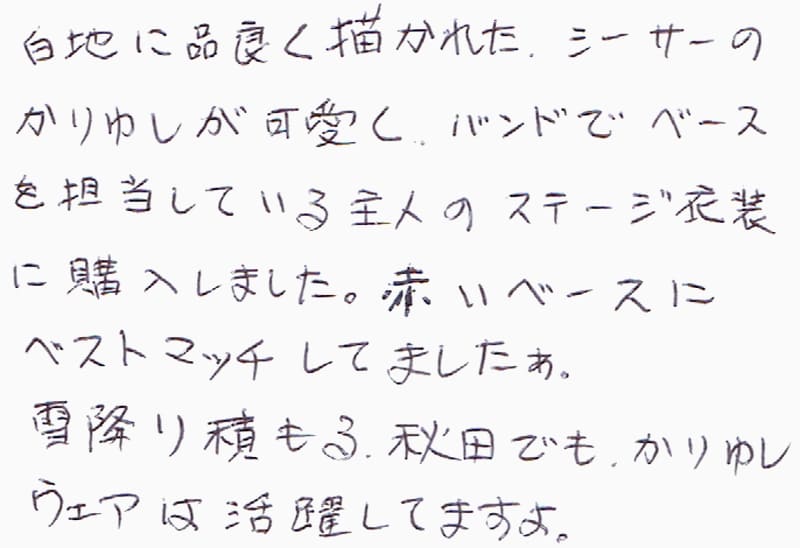 白地に品良く描かれた、シーサーの
かりゆしが可愛く、バンドでベース
を担当している主人のステージ衣装
に購入しました。赤いベースに
ベストマッチしてましたぁ。
雪降り積もる、秋田でも、かりゆし
ウェアは活躍してますよ。